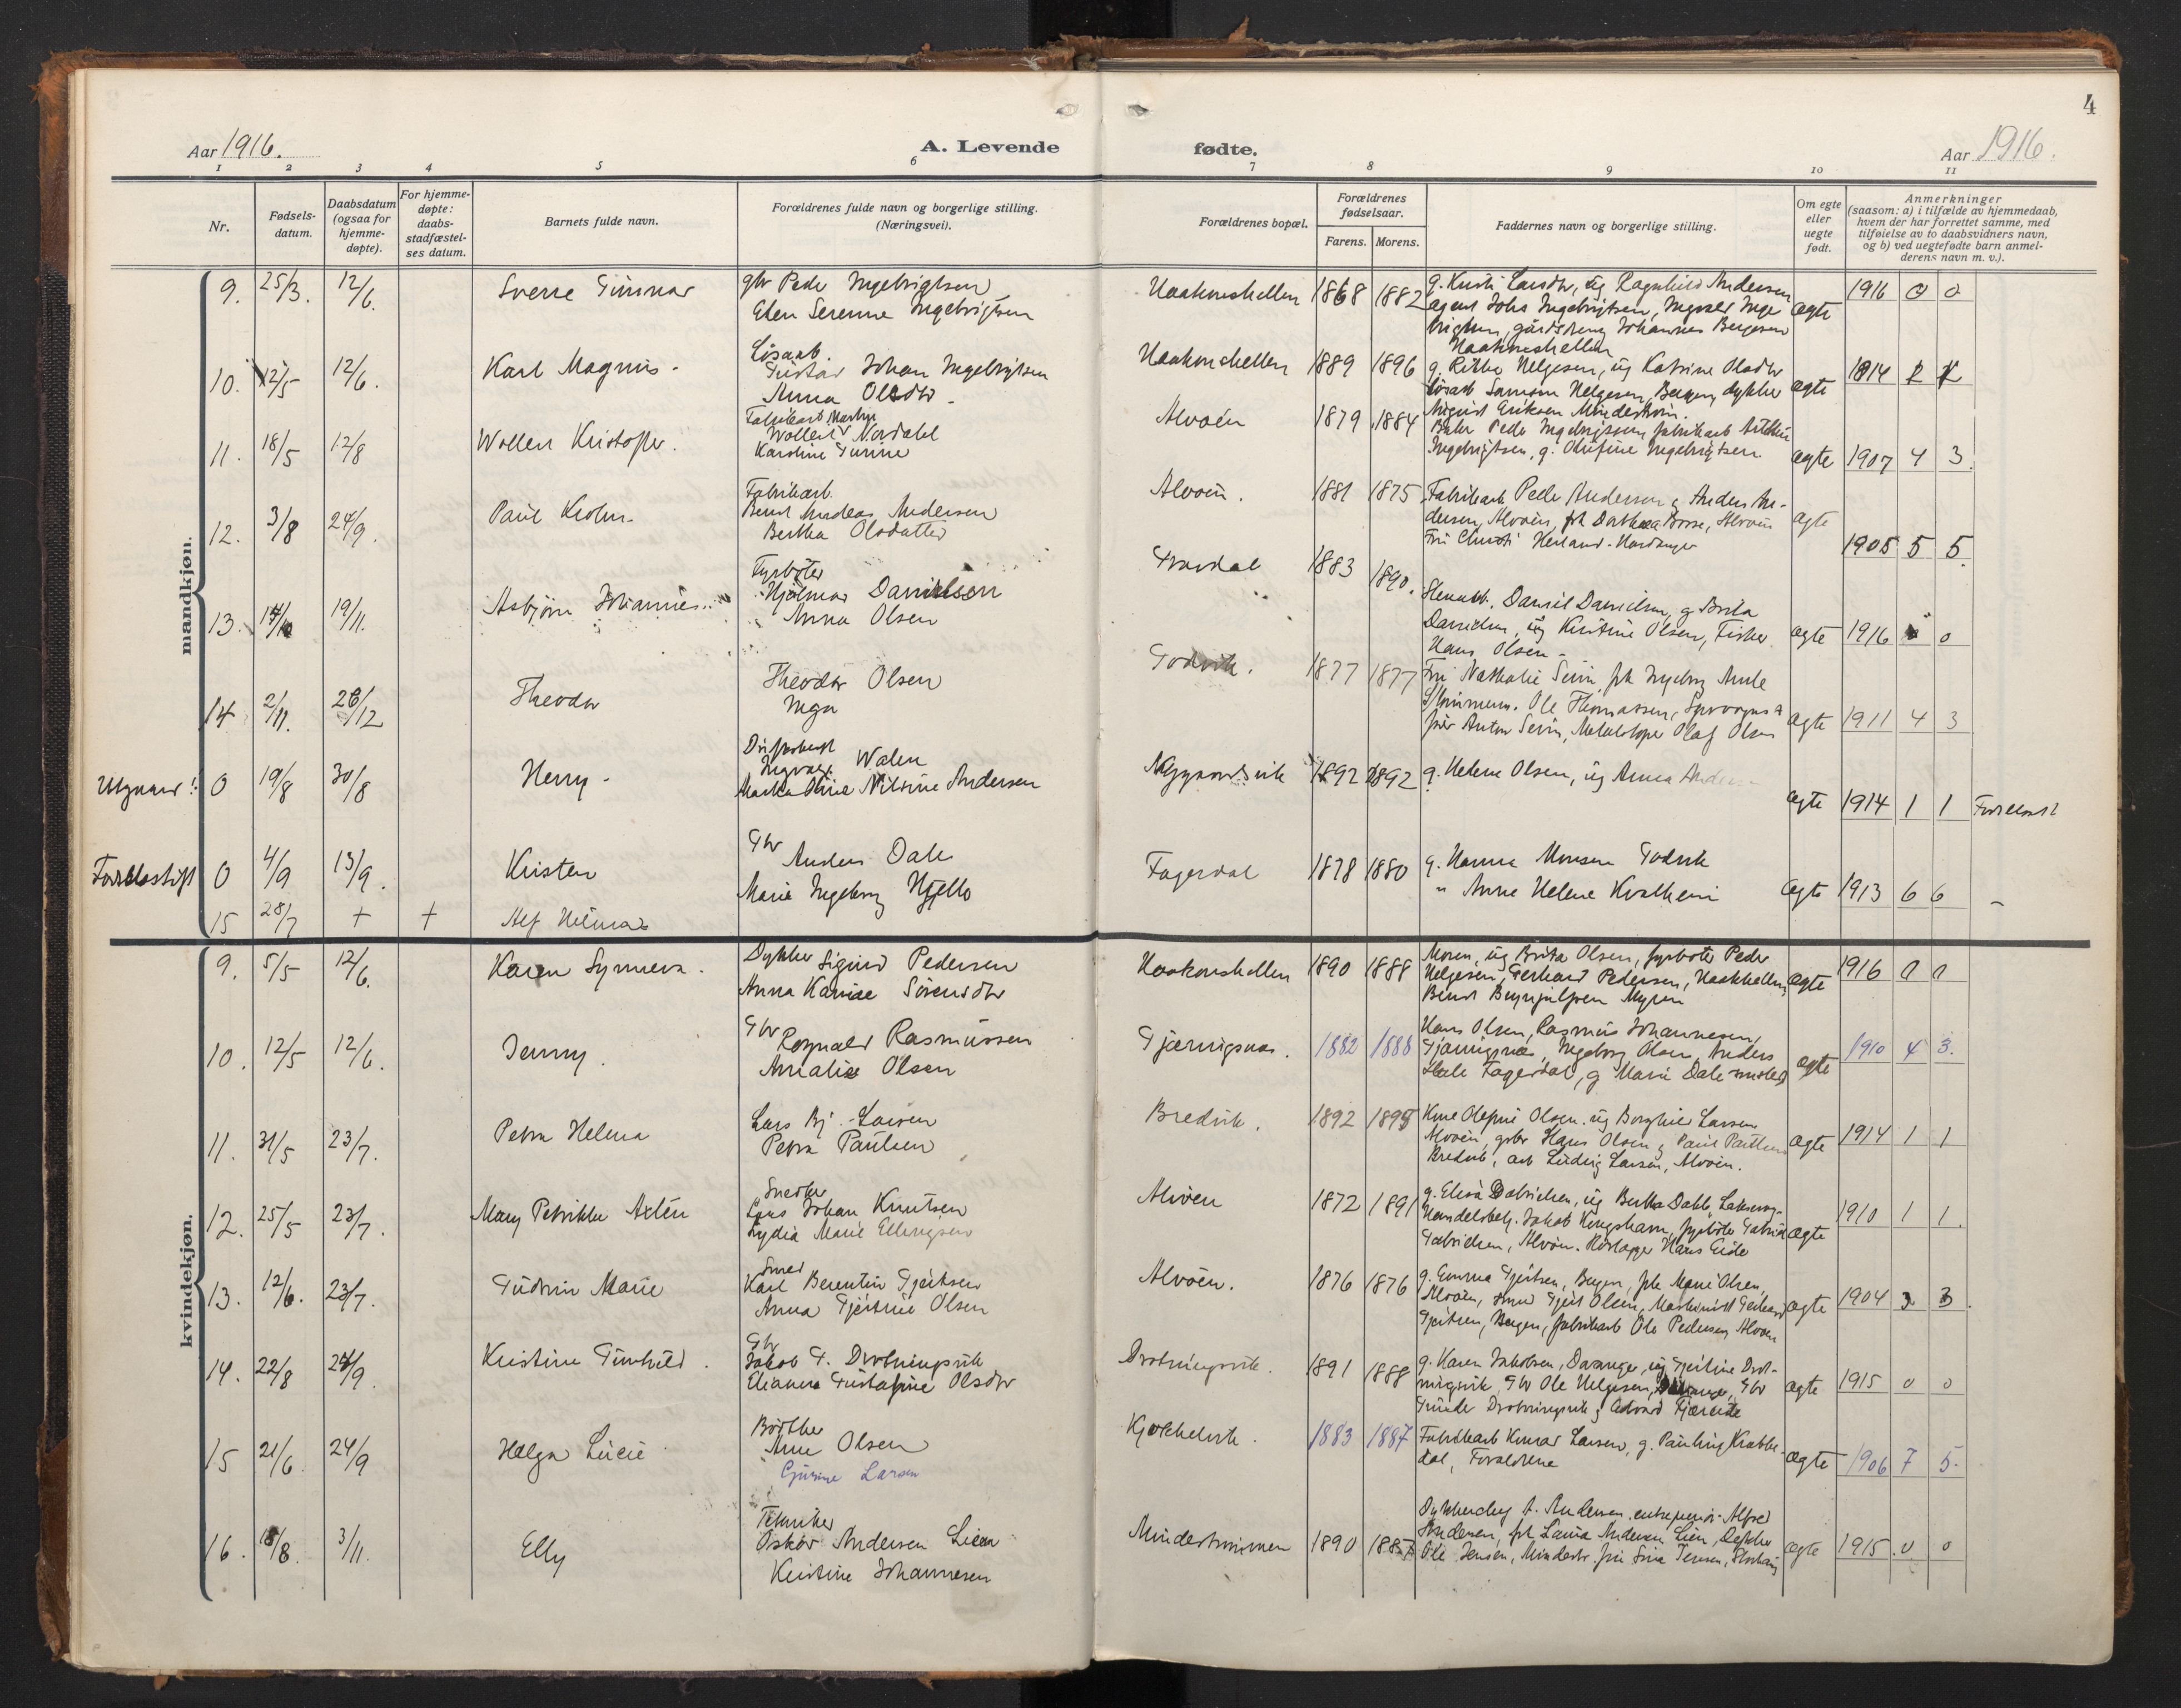 4
Aar 1916.
A. Levende fødte.
Aar 1916.
1 2 3 4 5 6 7 8 9 10 11
Nr.
Fødsels-
datum.
Daabsdatum
(ogsaa for
hjemme-
døpte).
For hjemme-
døpte:
daabs-
stadfæstel-
ses datum.
Barnets fulde navn.
Forældrenes fulde navn og borgerlige stilling.
(Næringsvei).
Forældrenes bopæl.
Forældrenes
fødselsaar.
Farens. Morens.
Faddernes navn og borgerlige stilling.
Om egte
eller
uegte
født.
Anmerkninger
(saasom: a) i tilfælde av hjemmedaab,
hvem der har forrettet samme, med
tilføielse av to daabsvidners navn,
og b) ved uegtefødte barn anmel-
derens navn m. v.).
mandkjøn.
9. 25/3. 12/6. Sverre Gunnar
gbr Peder Ingebrigtsen
Elen Serenne Ingebrigtsen
Haakonshellen 1868 1882
g. Kirsti Larsdtr, ug Ragnhild Andersen
agent Johs Ingebrigtsen, Ingvald Inge
brigtsen, gårdsdreng Johannes Bergesen
Haakonshellen
ægte 1916 0 0
10. 12/5 12/6. Karl Magnus.
Løsarb.
Gustav Johan Ingebrigtsen
Anna Olsdtr.
Haakonshellen 1889 1896
g. Rikke Helgesen, ug Katrine Olsdtr
Løsarb Samson Helgesen, Bergen, dykker
August Eriksen Mindestrøm.
ægte 1914 2
11. 18/5 12/8 Wollert Kristoffer.
Fabrikarb. Martin
Wollert Nordahl
Karoline Gurine
Alvøen 1879 1884
Peder Ingebrigtsen, fabrikarb
Ingebrigtsen, g. Olufine Ingebrigtsen.
ægte 1907 4 3.
12. 3/8 24/9. Paul Krohn.
Fabrikarb.
Bernt Andreas Andersen
Bertha Olsdatter
Alvøen. 1881 1875
Fabrikarb Peder Andersen & Anders An-
dersen, Alvøen, frk Dorthea Børse, Alvøen
Fru Christi Herland - Hardanger
ægte 1905 5 5.
13. 14/10 19/11. Asbjørn Johannes
Fyrbøter
Hjalmar Danielsen
Anna Olsen
Gravdal 1883 1890.
Daniel Danielsen, g Brita
Danielsen, ug Kristine Olsen, Fisker
Hans Olsen.
ægte 1916 0
14 2/11. 26/12 Theodor
Theodor Olsen
Inga
Godvik. 1877 1877
Fru Nathalie Seim, frk Ingeborg Anda
Ole Thomassen, Sporvogns
før Anton Seim, Olaf Olsen
ægte 1911 4 3
Utgaard!: 0 19/8 30/8 Henry.
Ingvald Walen
Martha Oline Nilsine Andersen
Nygaardsvik 1892 1892
g. Helene Olsen, ug Anna Ander
ægte 1914 1 1
Fødselsstift 0 4/9 13/9. Kristen
Gbr
Anders Dale
Marie Ingeborg Hjello
Fagerdal 1878 1880
g. Hanna Monsen Godvik
" Anne Helene Kvalheim
ægte 1913 6 6 –
15 28/7 + + Alf Hilmar
kvindekjøn.
9. 5/5 12/6. Karen Synneva.
Dykker Sigurd Pedersen
Anna Karine Sørensdtr
Haakonshellen 1890 1888
Moren, ug Brita Olsen, fyrbøter Peder
Helgesen, Gerhard Pedersen, Haakhellen,
Bernt Brynjulfsen Myren
ægte 1916 0 0
10. 12/5 12/6. Jenny.
Gbr
Ragnald Rasmussen
Amalie Olsen
Gjærnigsnæs. 1882 1888
Hans Olsen, Rasmus Johannesen,
Gjærnigsnæs, Ingeborg Olsen, Anders
Dale Fagerdal, g Marie Dale smsteds
ægte 1910 4 3.
11. 31/5 23/7. Petra Helena
Lars Bj. Larsen
Petra Paulsen
Bredvik. 1892 1895
Kone Olefine Olsen. ug Borghild Larsen
Alvøen, gbr Hans Olsen, Paul Paulsen
Bredvik, arb Ludvig Larsen, Alvøen.
ægte 1914 1 1
12. 25/5 23/7. Mary Petrikke Axlén
Snedker
Lars Johan Knutsen
Lydia Marie Ellingsen
Alvøen 1872 1891
g. Elisa Gabrielsen, ug Bertha Dahle Laksevåg.
Handelsbetj. Jakob Kingshavn, fyrbøter Gabriel
Gabrielsen, Alvøen. Hans Eide
ægte 1910 1 1.
13. 12/6. 23/7. Gudrun Marie
Smed
Karl Berentin Gjertsen
Anna Gjertine Olsen
Alvøen. 1876 1876
g. Emma Gjertsen, Bergen, frk Marie Olsen,
Alvøen, smed Gjert Olsen, Maskinist Gerhard
Gjertsen, Bergen, fabrikarb Ole Pedersen Alvøen
ægte 1904 3 3.
14. 22/8 24/9. Kristine Gunhild.
Gbr
Jakob G. Drotningsvik
Elianna Gustafine Olsdtr
Drotningsvik. 1891 1888
g. Karen Jakobsen, Davanger, ug Gjertine Drot-
ningsvik, Gbr Ole Helgesen, Davanger, Gbr
Drotningsvik & Edvard Fjæreide
ægte 1915 0 0
15 21/6 24/9 Helga Lucie
Bødker
Arne Olsen
Gurine Larsen
Kjøkkelvik. 1883 1887
Fabrikarb Konrad Larsen, g. Pauline Krabbe-
dal, Forældrene
ægte 1906 7 5.
16. 18/8. 3/11. Elly
Tekniker
Oskar Andersen Lien
Kristine Johannesen
Mindestrømmen 1890 1887
A. Andersen, entreprenør Alfred
Andersen, frk Laura Andersen Lien, Dykker
Ole Jensen, Mindestr. fru Sina Jensen,
ægte 1915 0 0